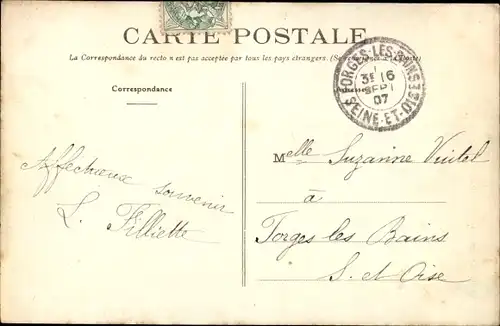 CARTE POSTALE
La Correspondance du recto n'est pas acceptée par tous les pays étrangers. (Se
Correspondance
FORGES-LES-BAINS
3E 16
SEPT
07
SEINE-ET-OISE
Melle Suzanne
à
Affectueux souvenir
L. Filliette
Forges les Bains
S. et Oise